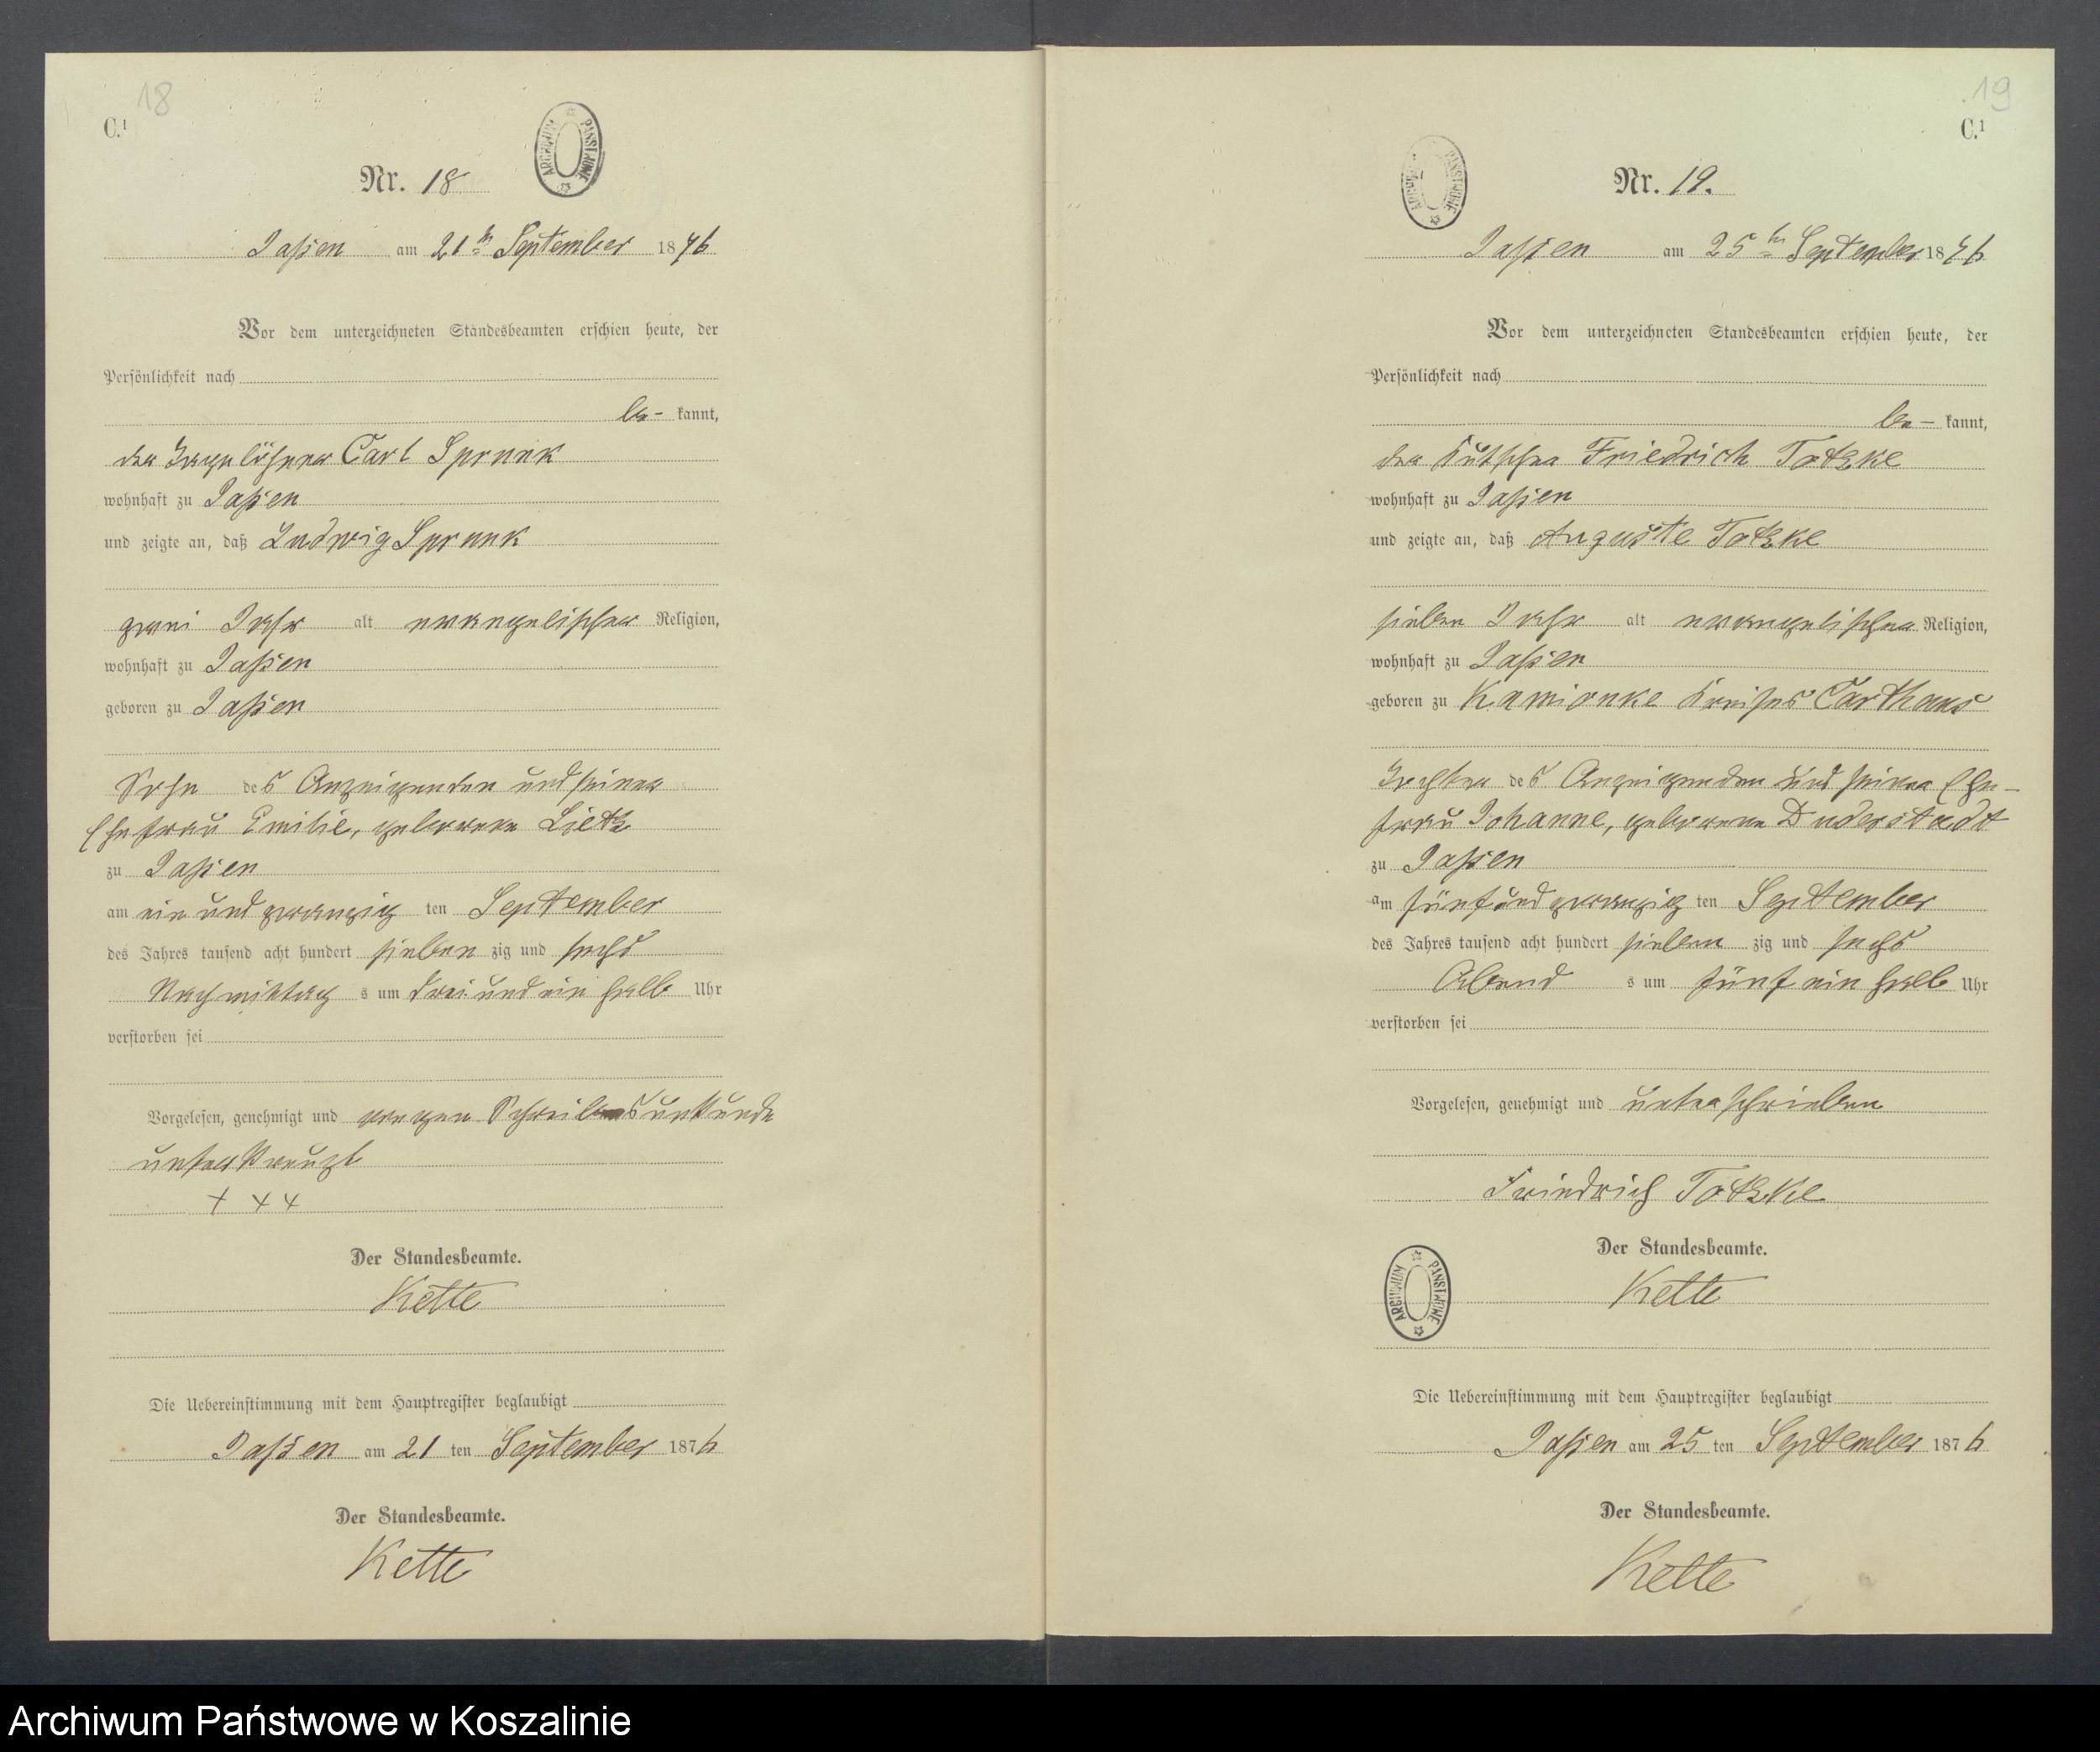 18
C.¹
Nr. 18
ARCHIWUM PAŃSTWOWE
Jassen am 21ten September 1876
Vor dem unterzeichneten Standesbeamten erschien heute, der
Persönlichkeit nach
be- kannt,
der Tagelöhner Carl Sprunk
wohnhaft zu Jassen
und zeigte an, daß Ludwig Sprunk
zwei Jahr alt evangelischer Religion,
wohnhaft zu Jassen
geboren zu Jassen
Sohn des Anzeigenden und seiner
Ehefrau Emilie, geborene Lietz
zu Jassen
am ein und zwanzig ten September
des Jahres tausend acht hundert sieben zig und sechs
Nachmittag s um drei und ein halb Uhr
verstorben sei
Vorgelesen, genehmigt und wegen Schreibensunkunde
unterkreuzt
+ + +
Der Standesbeamte.
Kette
Die Uebereinstimmung mit dem Hauptregister beglaubigt
Jassen am 21 ten September 1876
Der Standesbeamte.
Kette
19
C.¹
ARCHIWUM PAŃSTWOWE
Nr. 19.
Jassen am 25ten September 1876
Vor dem unterzeichneten Standesbeamten erschien heute, der
Persönlichkeit nach
be- kannt,
der Kutscher Friedrich Totzke
wohnhaft zu Jassen
und zeigte an, daß Auguste Totzke
sieben Jahr alt evangelischer Religion,
wohnhaft zu Jassen
geboren zu Kamionke Kreises Carthaus
Tochter des Anzeigenden und seiner Ehe-
frau Johanne, geborene Duderstadt
zu Jassen
am fünf und zwanzig ten September
des Jahres tausend acht hundert sieben zig und sechs
Abend s um fünf ein halb Uhr
verstorben sei
Vorgelesen, genehmigt und unterschrieben
Friedrich Totzke
Der Standesbeamte.
ARCHIWUM PAŃSTWOWE
Kette
Die Uebereinstimmung mit dem Hauptregister beglaubigt
Jassen am 25 ten September 1876
Der Standesbeamte.
Kette
Archiwum Państwowe w Koszalinie